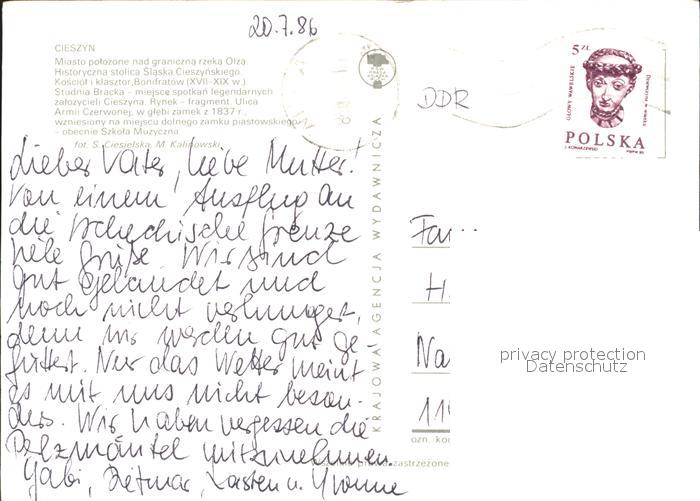 20.7.86
CIESZYN
Miasto położone nad graniczną rzeką Olzą.
Historyczna stolica Śląska Cieszyńskiego.
Kościół i klasztor Bonifratów (XVII-XIX w.)
Studnia Bracka – miejsce spotkań legendarnych
założycieli Cieszyna. Rynek – fragment. Ulica
Armii Czerwonej, w głębi zamek z 1837 r.,
wzniesiony na miejscu dolnego zamku piastowskiego
– obecnie Szkoła Muzyczna
fot. S. Ciesielska, M. Kalinowski
Lieber Vater, liebe Mutter!
Von einem Ausflug an
die tschechische Grenze
viele Grüße. Wir sind
gut gelandet und
noch nicht verhungert,
denn wir werden gut ge-
füttert. Nur das Wetter meint
es mit uns nicht beson-
ders. Wir haben vergessen die
Pelzmäntel mitzunehmen.
Gabi, Dietmar, Karsten u. Yvonne
KRAJOWA AGENCJA WYDAWNICZA
5 ZŁ
GŁOWY WAWELSKIE
POLSKA
DDR
Fam
H
Na
11
privacy protection
Datenschutz
ozn. ko
zastrzeżone